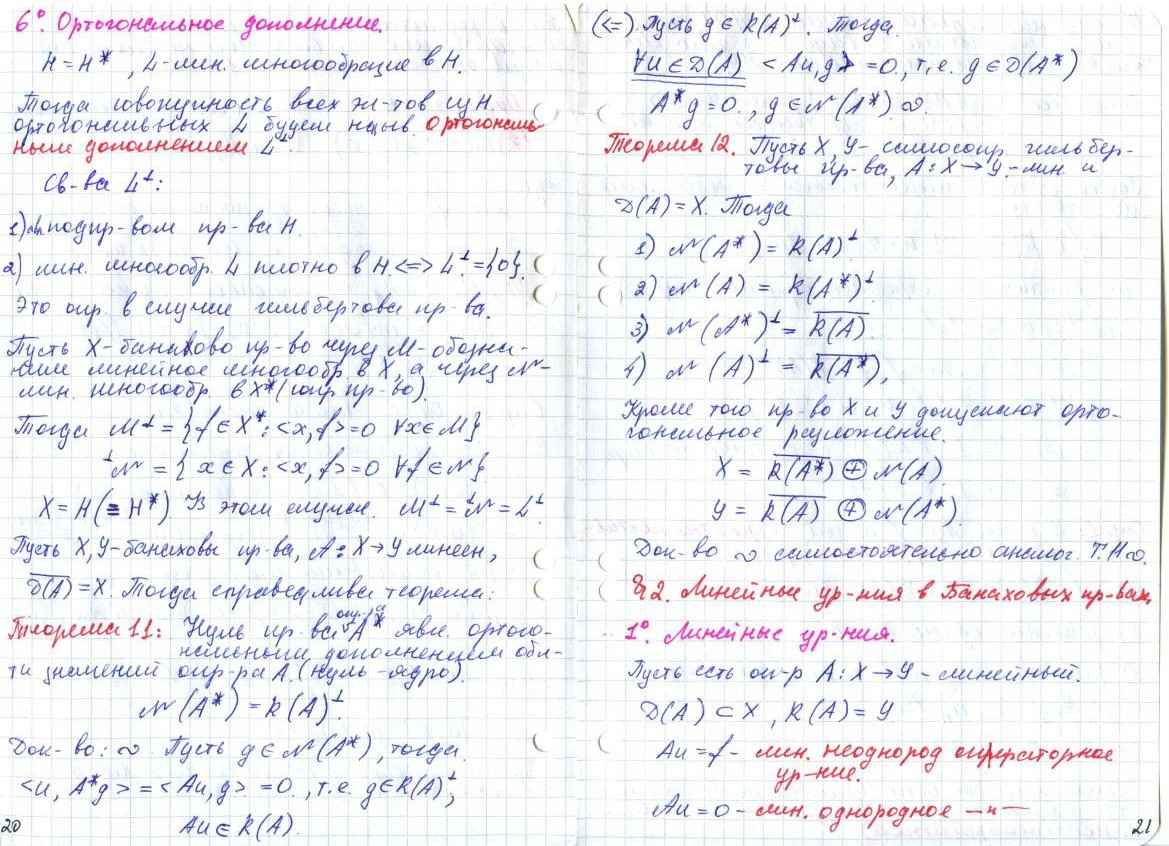 6°. Ортогональное дополнение.
H = H*, L - лин. многообразие в H.
Тогда совокупность всех эл-тов из H.
ортогональных L будем назыв. ортогональ-
ным дополнением L⊥.
Св-ва L⊥:
1) явл. подпр-вом пр-ва H.
2) лин. многообр. L плотно в H <=> L⊥ = {0}.
Это опр. в случае гильбертова пр-ва.
Пусть X - банахово пр-во через M - обозна-
чим линейное многообр в X, а через N -
лин. многообр. в X* (сопр пр-во).
Тогда M⊥ = {f ∈ X* : <x, f> = 0 ∀x ∈ M}
⊥N = {x ∈ X : <x, f> = 0 ∀f ∈ N}
X = H (≡ H*) В этом случае. M⊥ = ⊥N = L⊥.
Пусть X, Y - банаховы пр-ва, A : X → Y линеен,
D(A) = X. Тогда справедлива теорема:
Теорема 11: Нуль пр-ва опр-ра A* явл. ортого-
нальным дополнением обл-
ти значений опр-ра A. (нуль - ядро).
N(A*) = R(A)⊥.
Док-во: ∾ Пусть g ∈ N(A*), тогда
<u, A*g> = <Au, g> = 0., т.е. g ∈ R(A)⊥,
Au ∈ R(A).
20
(<=). Пусть g ∈ R(A)⊥. Тогда
∀u ∈ D(A) <Au, g> = 0., т.е. g ∈ D(A*)
A*g = 0., g ∈ N(A*) ∾
Теорема 12. Пусть X, Y - самосопр. гильбер-
товы пр-ва, A : X → Y - лин. и
D(A) = X. Тогда
1) N(A*) = R(A)⊥
2) N(A) = R(A*)⊥.
3) N(A*)⊥ = R(A).
4) N(A)⊥ = R(A*),
Кроме того пр-во X и Y допускают орто-
гональное разложение.
X = R(A*) ⊕ N(A).
Y = R(A) ⊕ N(A*).
Док-во ∾ самостоятельно аналог. Т.11 ∾.
§2. Линейные ур-ния в Банаховых пр-вах
1°. Линейные ур-ния.
Пусть есть оп-р A : X → Y - линейный.
D(A) ⊂ X, R(A) = Y
Au = f - лин. неоднород операторное
ур-ние.
Au = 0 - лин. однородное —"—
21